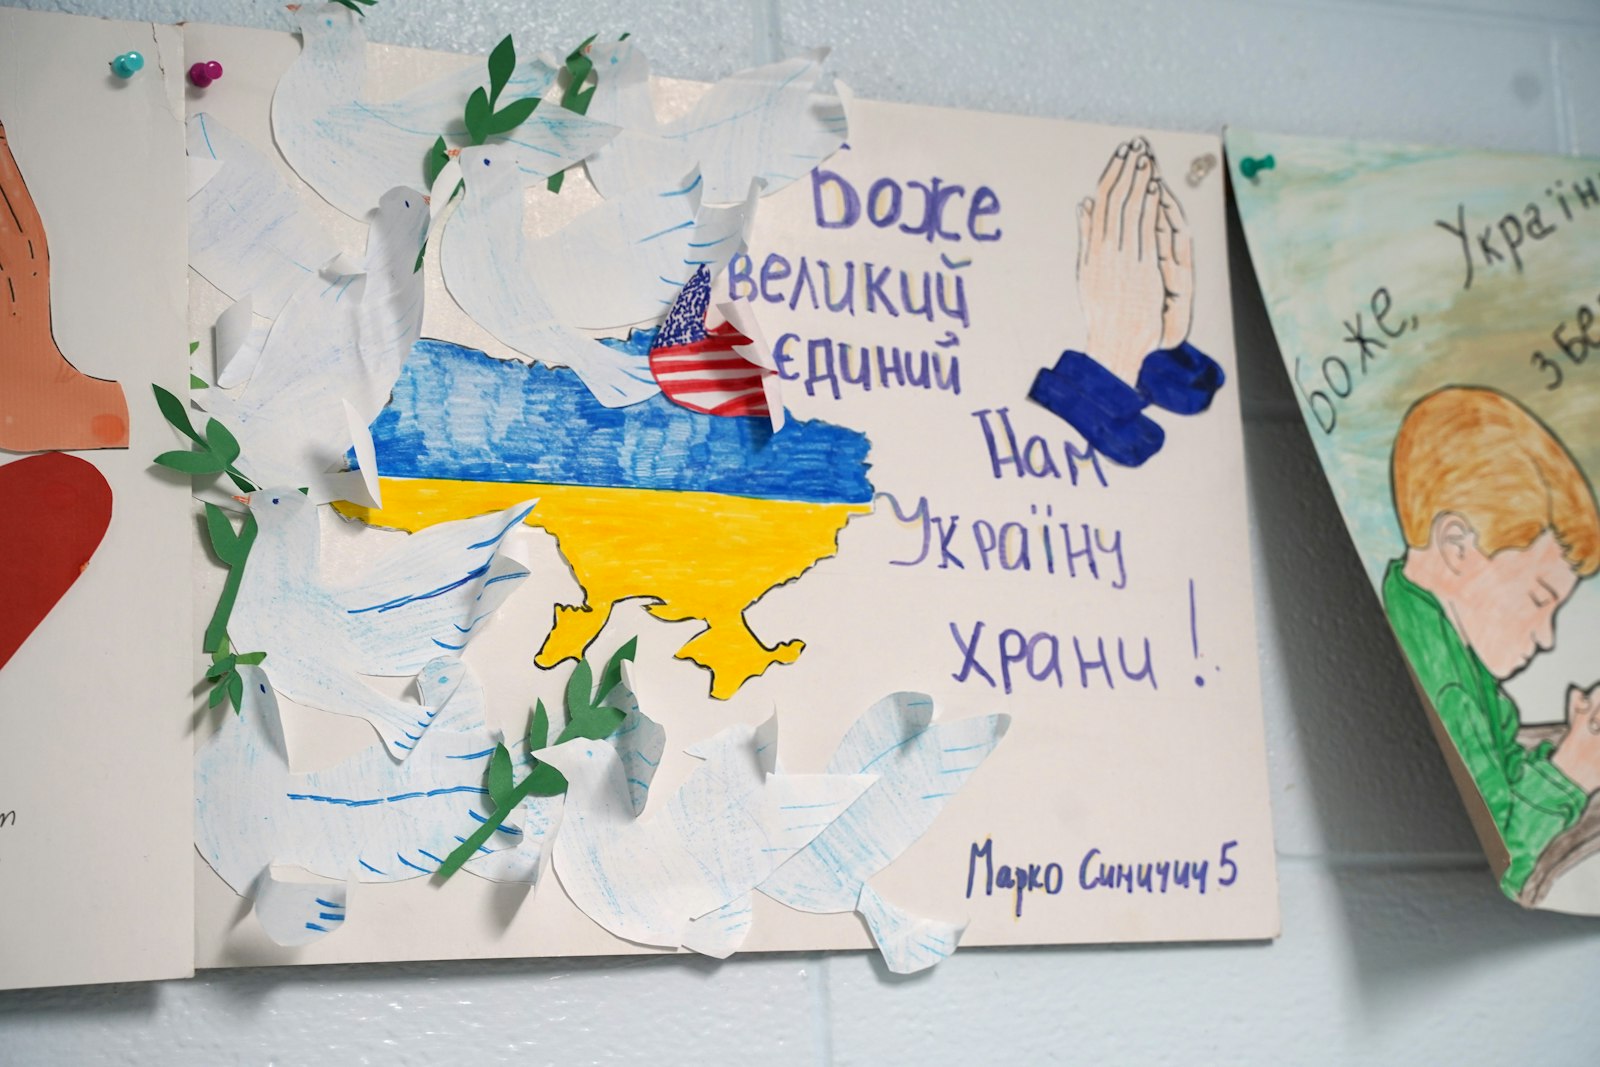 Боже
великий
єдиний
Нам
Україну
храни!
Марко Синичич 5
Боже, Україн
збе